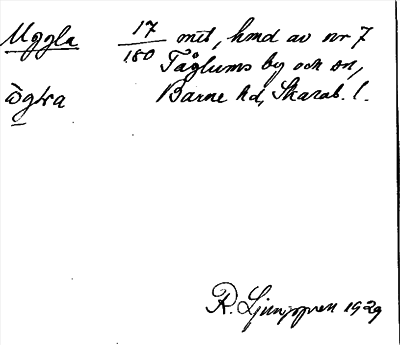 Uggla 17/180 mtl, hmd av nr 7
Tåglums by och sn,
ògla Barne hd, Skarab. l.
R. Ljunggren 1929